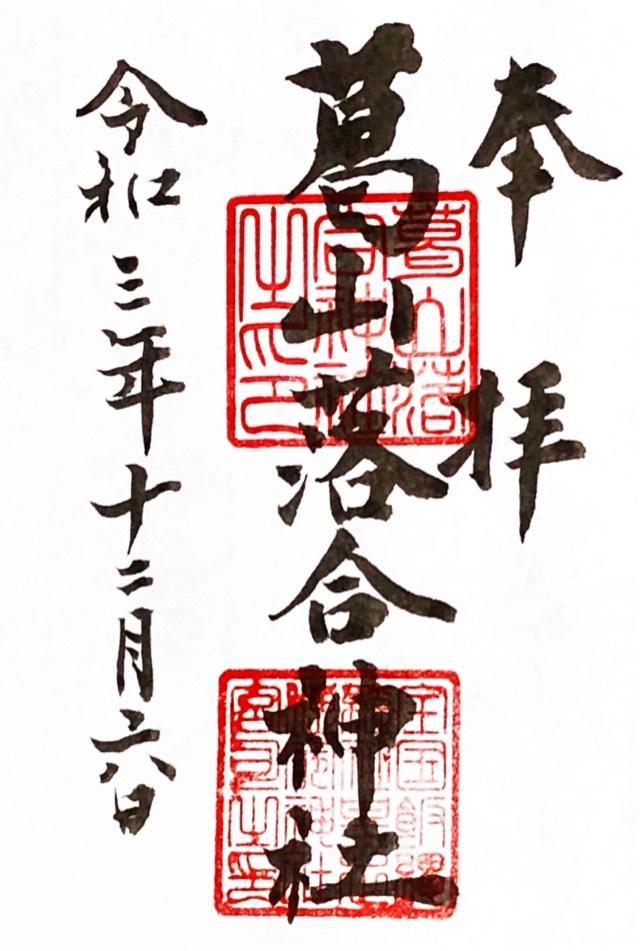 奉拝
葛山落合神社
葛山落
合神社
之印
令和三年十二月六日